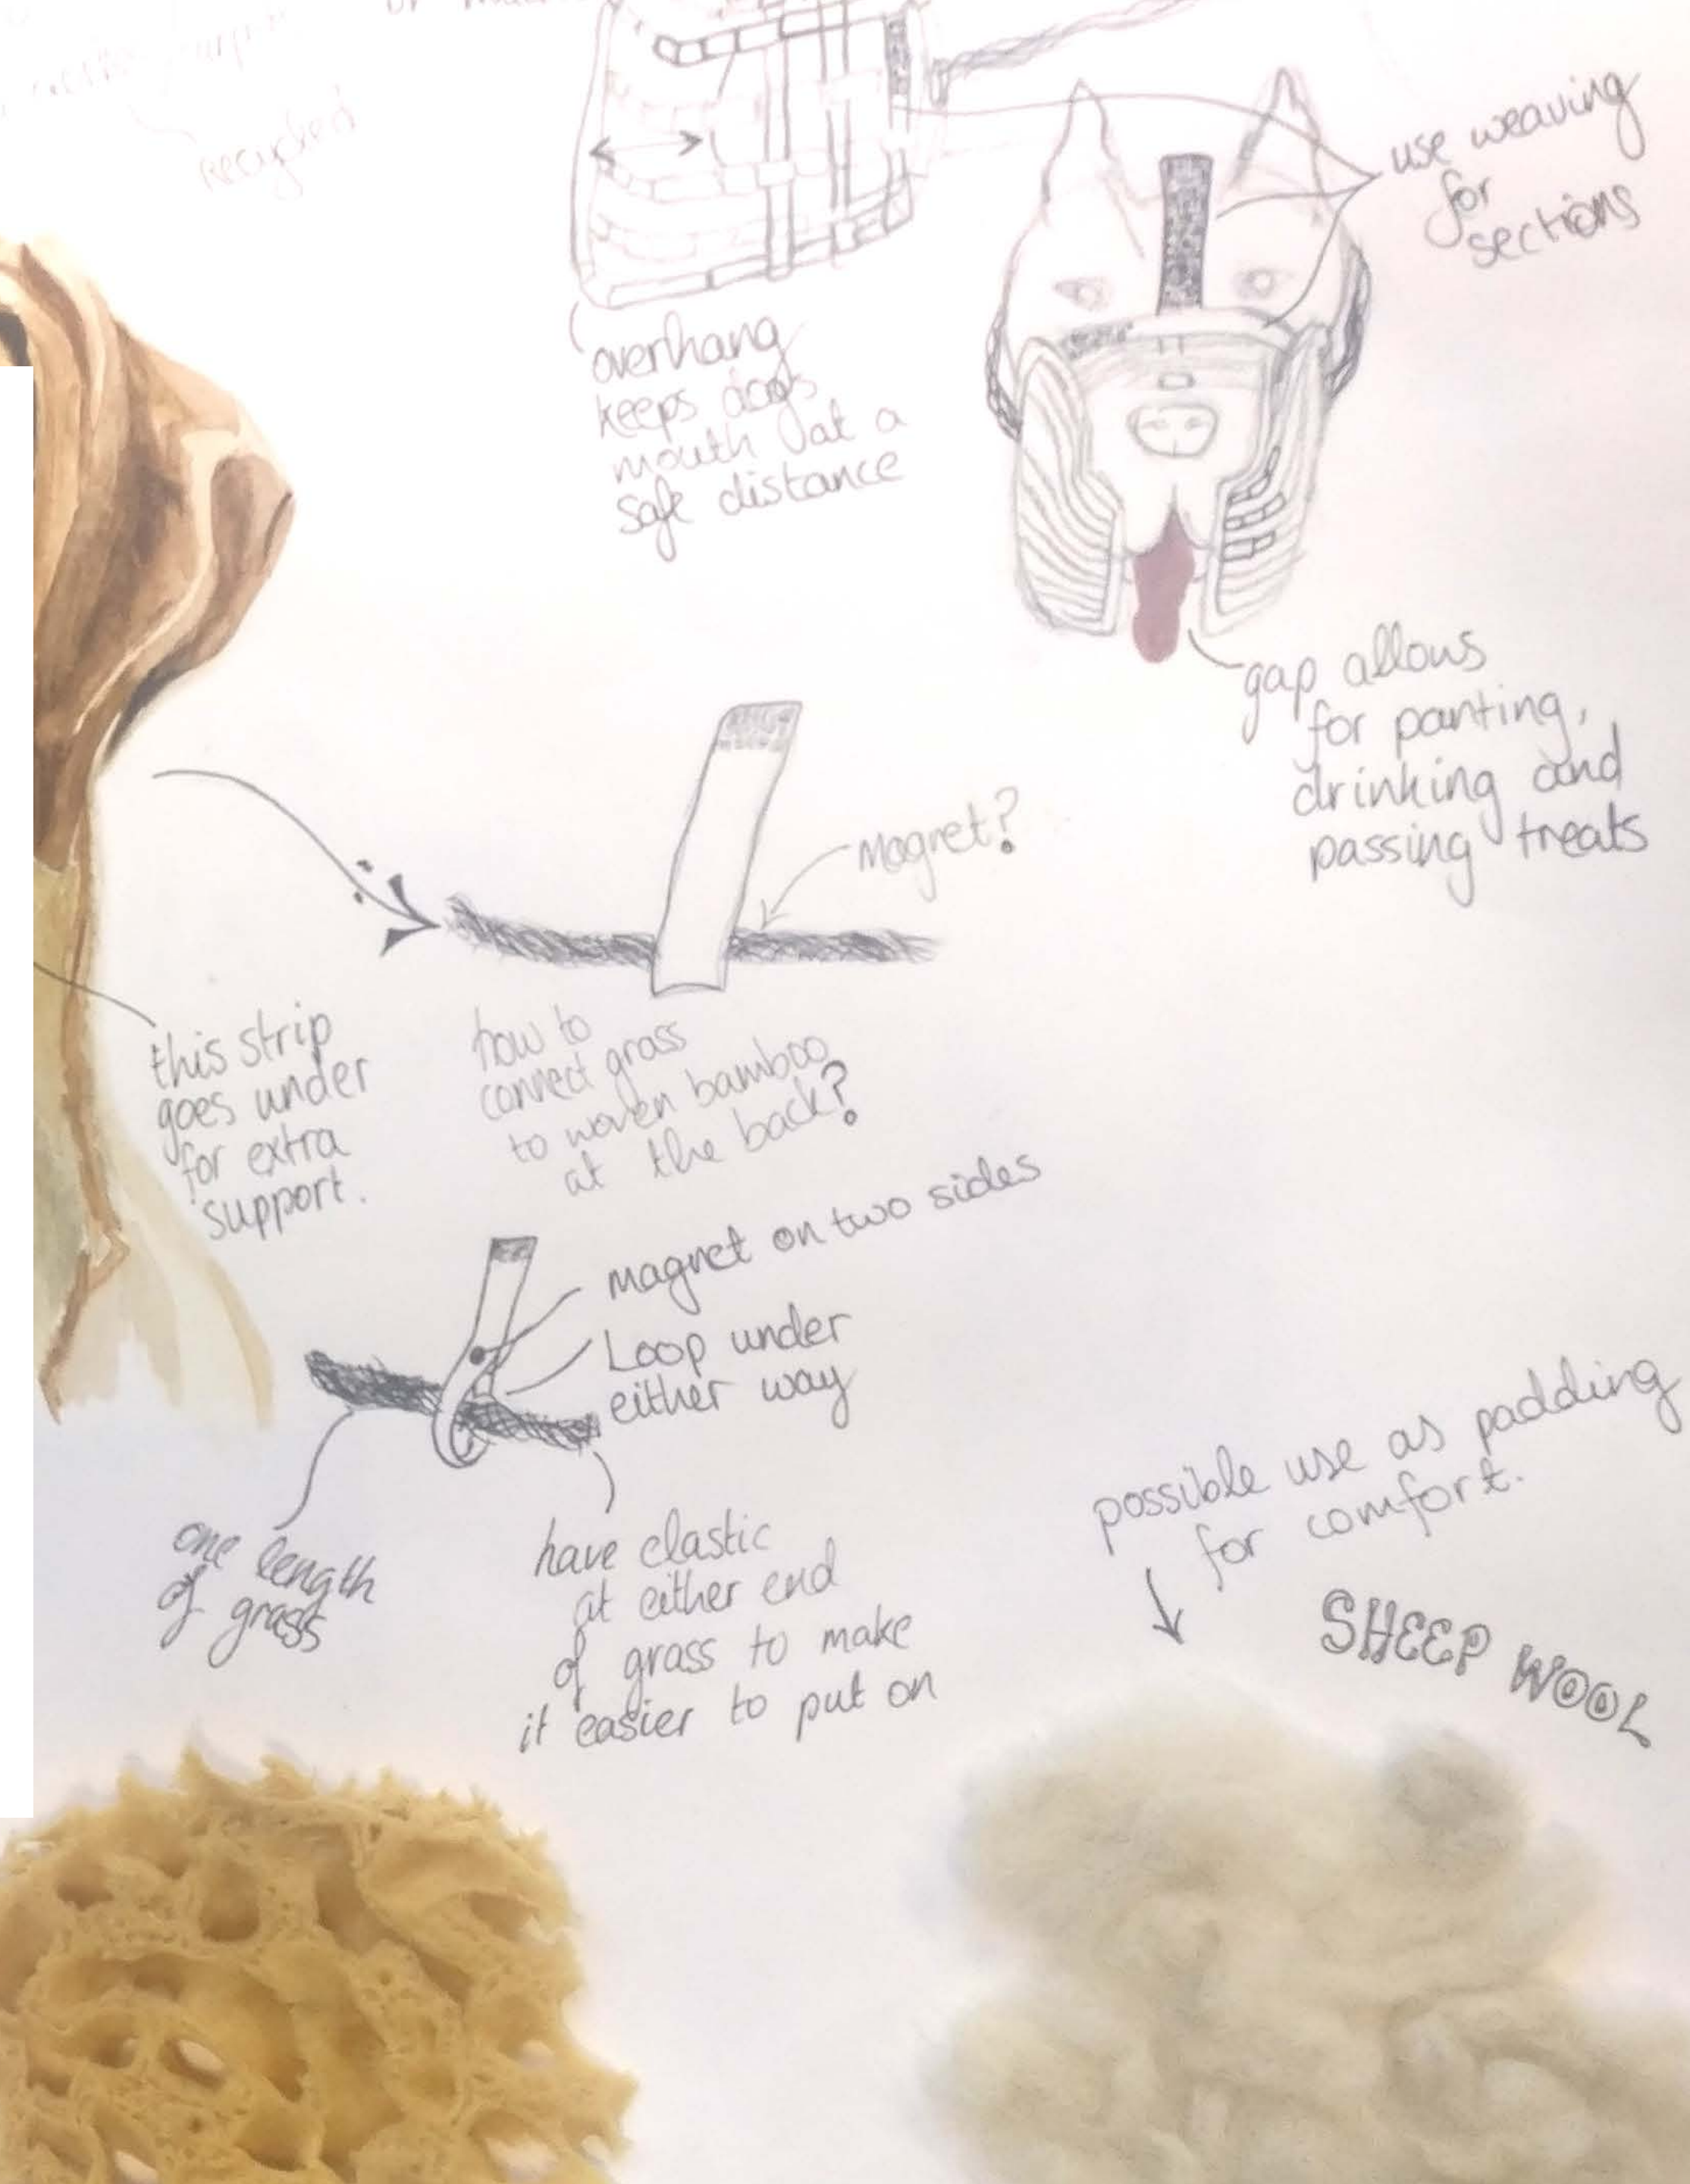 recycled
use weaving
for
sections
overhang
keeps dogs
mouth at a
safe distance
gap allows
for panting,
drinking and
passing treats
Magnet?
this strip
goes under
for extra
support.
how to
connect grass
to woven bamboo
at the back?
magnet on two sides
Loop under
either way
one length
of grass
have elastic
at either end
of grass to make
it easier to put on
possible use as padding
for comfort.
SHEEP WOOL